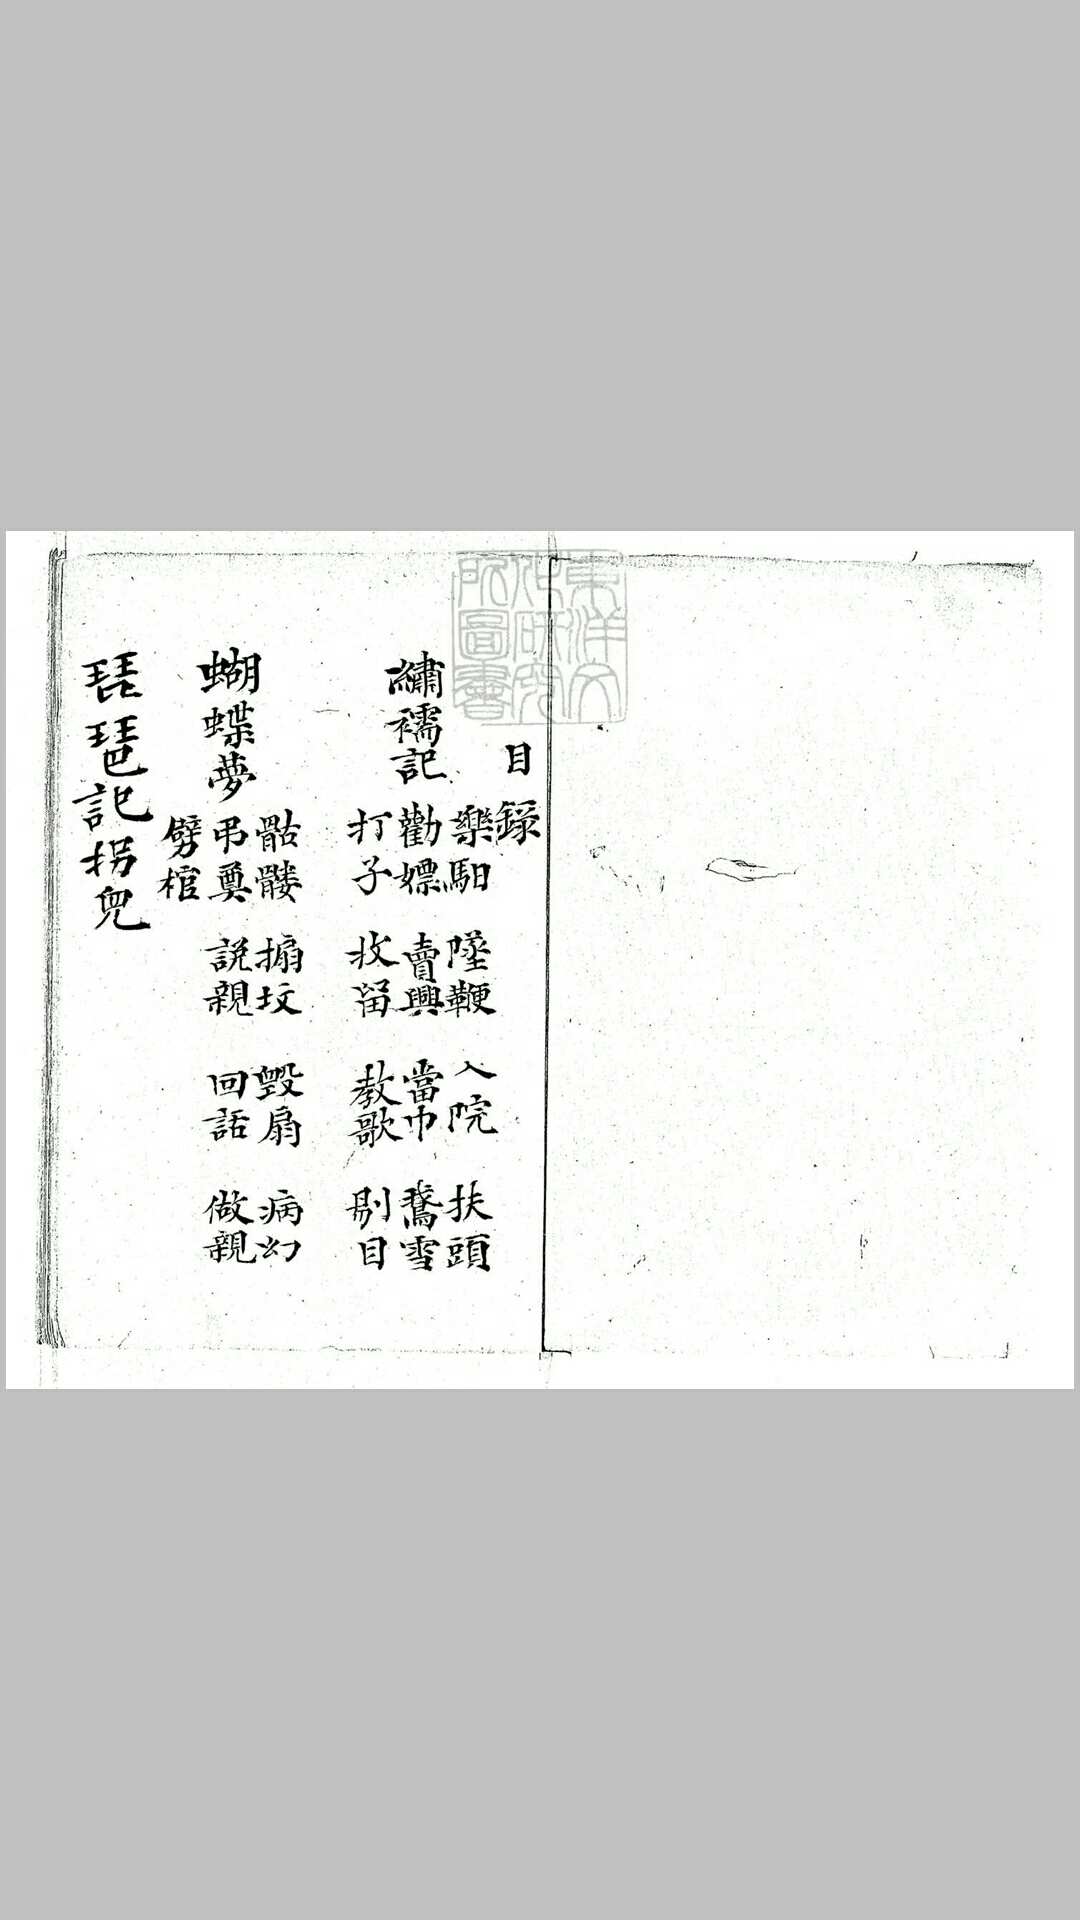 東洋文
化研究
所圖書
目錄
繡襦記
樂馹 墜鞭 入院 扶頭
勸嫖 賣興 當巾 鵞雪
打子 收留 教歌 剔目
蝴蝶夢
骷髏 搧坟 毀扇 病幻
弔奠 説親 回話 做親
劈棺
琵琶記拐兒